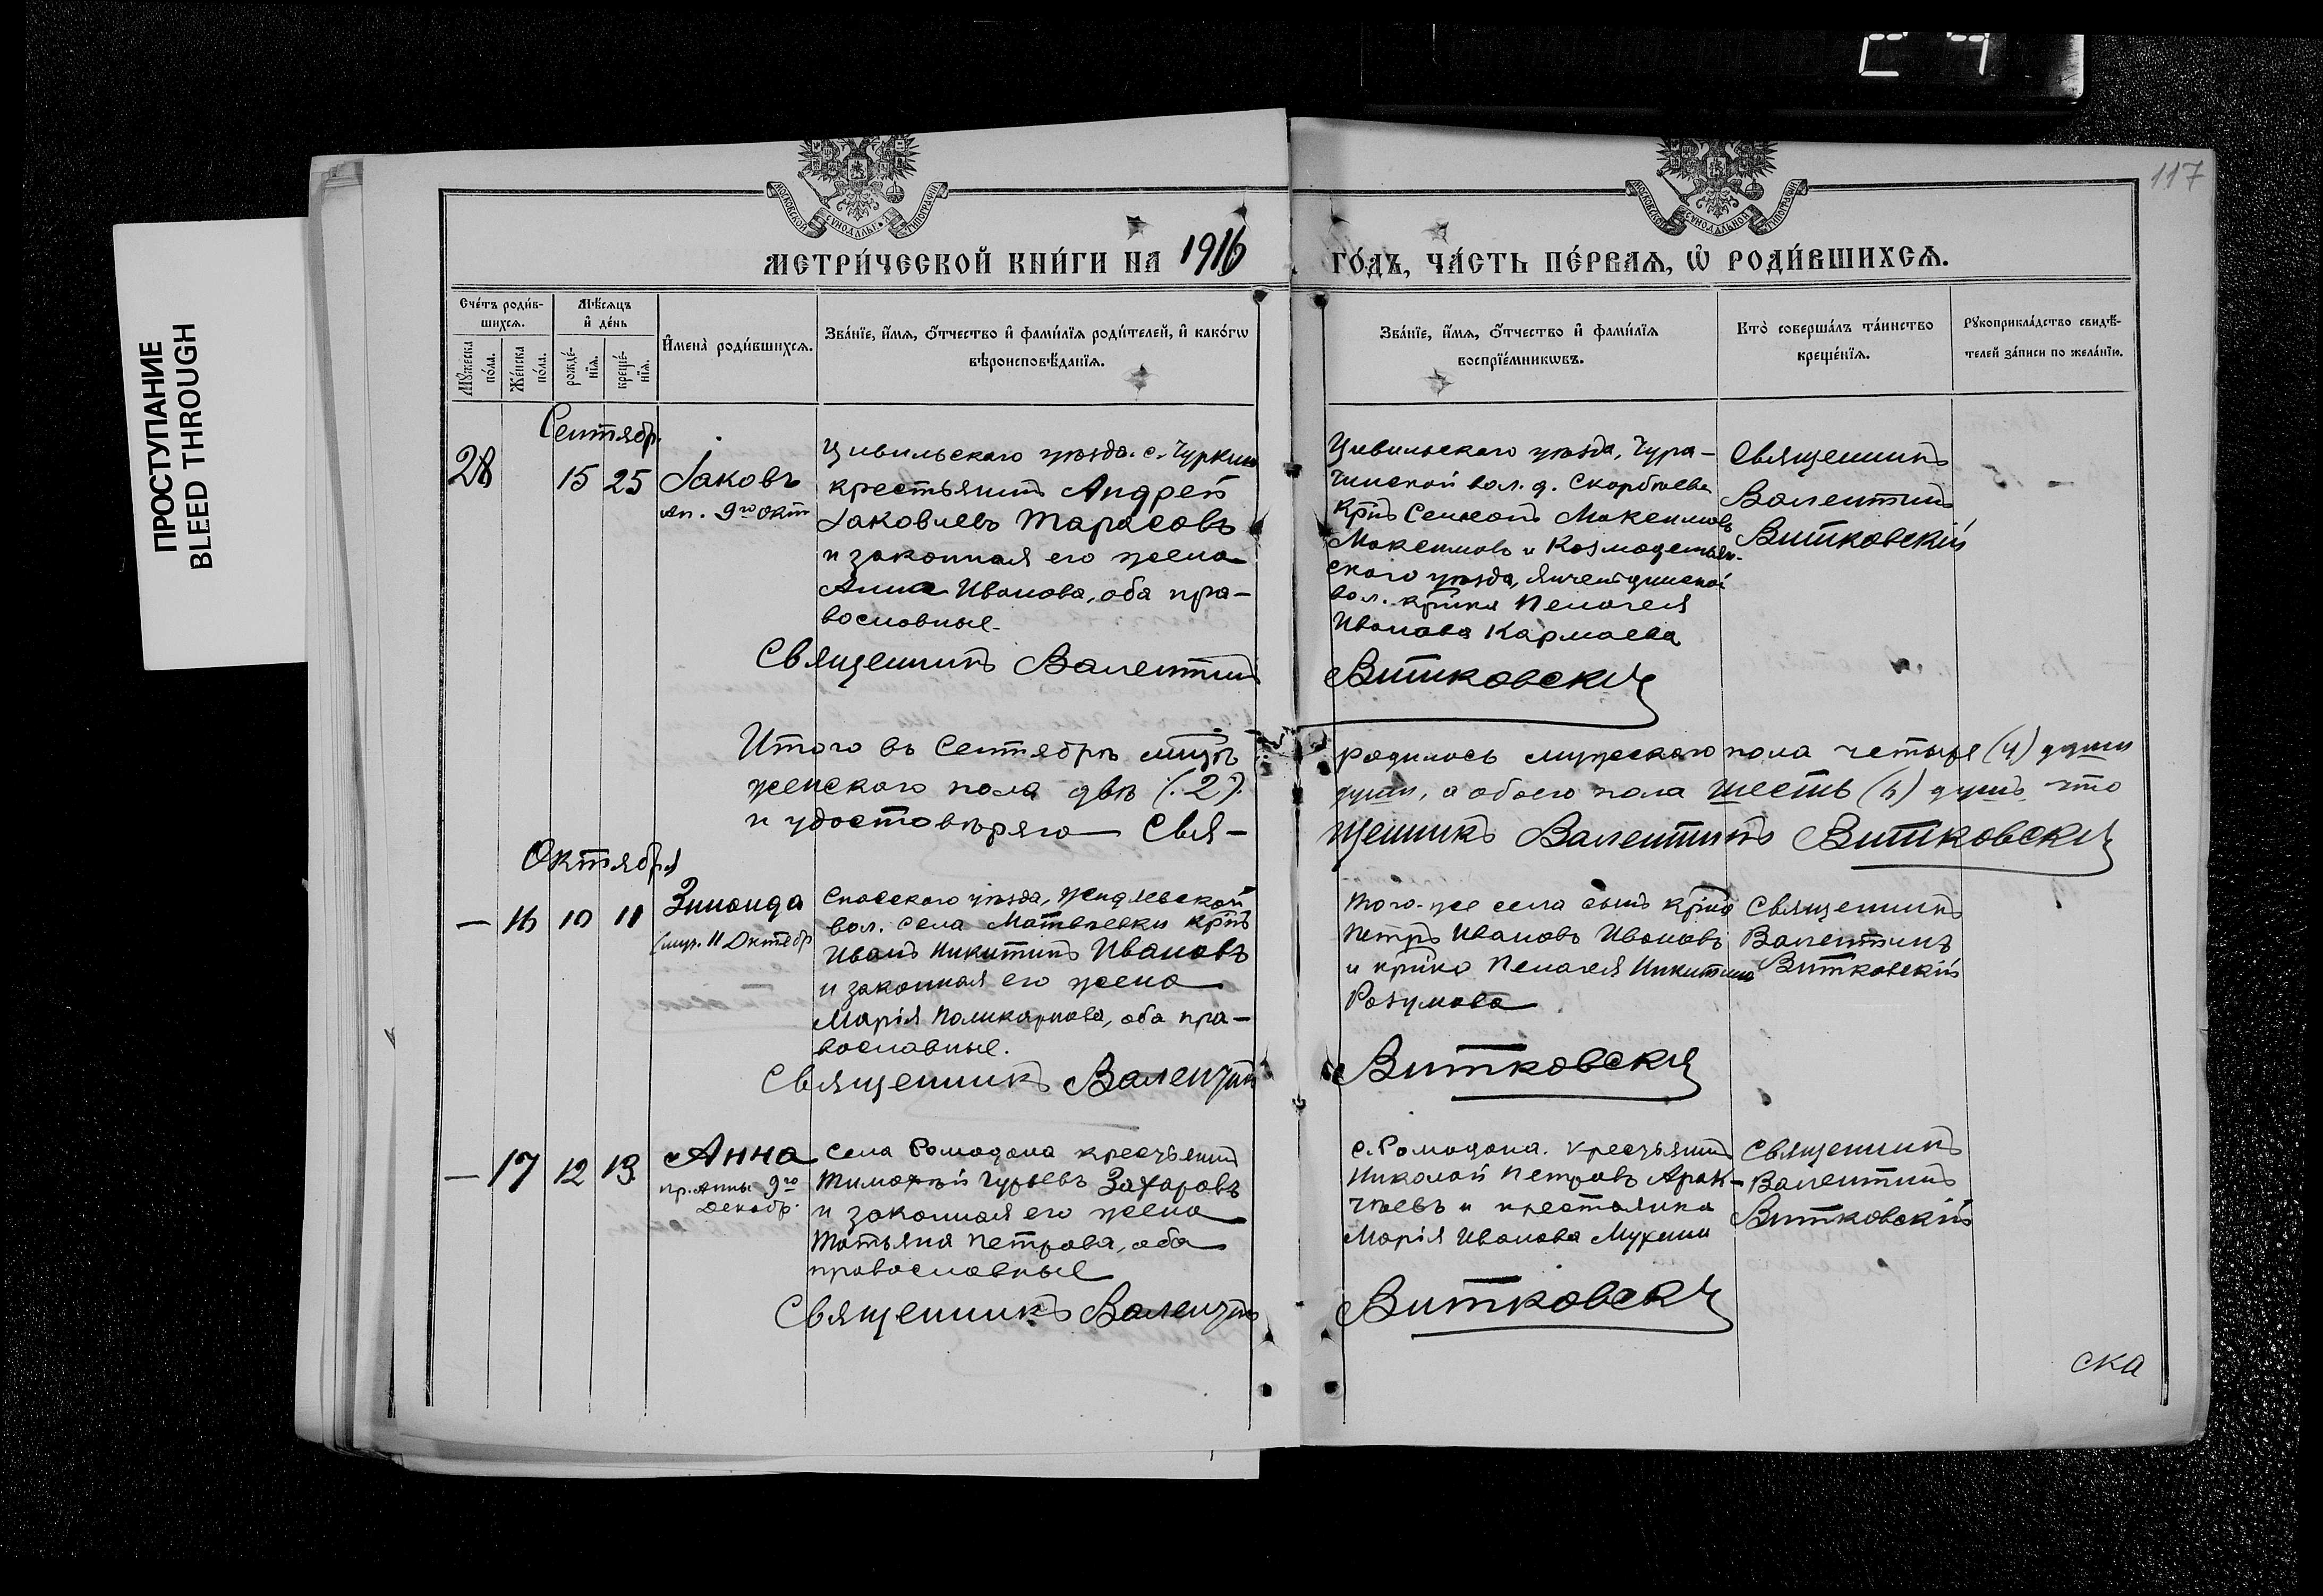 ПРОСТУПАНИЕ
BLEED THROUGH
117
МЕТРИ́ЧЕСКОЙ КНИ́ГИ НА 1916 ГО́ДЪ, ЧА́СТЬ ПЕ́РВАЯ, Ѡ РОДИ́ВШИХСЯ.
Сче́тъ роди́в-
шихся.
Мꙋ́жеска по́ла.
Же́нска по́ла.
Мѣ́сяцъ и҆ де́нь
рожде́-нїя.
креще́-нїя.
И҆мена̀ роди́вшихся.
Зва́нїе, и҆́мя, ѻ҆́тчество и҆ фами́лїя роди́телей, и҆ како́гѡ
вѣроисповѣ́данїя.
Зва́нїе, и҆́мя, ѻ҆́тчество и҆ фами́лїя
воспрїе́мникѡвъ.
Кто̀ соверша́лъ та́инство
креще́нїя.
Рꙋкоприкла́дство свидѣ́-
телей за́писи по жела́нїю.
Сентябр.
28 15 25
Іаковъ
Ап. 9го Окт
Цивильскаго уѣзда. с. Чуркина
крестьянинъ Андрей
Іаковлевъ Тарасовъ
и законная его жена
Анна Иванова, оба пра-
вославные.
Цивильскаго уѣзда, Чура-
чинской вол. д.
Крнъ Семенъ Максимовъ
Максимовъ и Козмодемьян-
скаго уѣзда,
вол. крнка Пелагея
Иванова Кармаева
Священникъ
Валентинъ
Витковскій
Священникъ Валентинъ Витковскій
Итого въ Сентябрѣ мцѣ родилось мужескаго пола четыре (4) души
женскаго пола двѣ (2) души, а обоего пола шесть (6) душъ, что
и удостовѣряю Священникъ Валентинъ Витковскій
Октября
— 16 10 11
Зинаида
муч. 11 Октябр
Спасскаго уѣзда, Жидяевской
вол. села Матвѣевки крнъ
Иванъ Никитинъ Ивановъ
и законная его жена
Марія Поликарпова, оба пра-
вославные.
Того-же села сынъ крна
Петръ Ивановъ Ивановъ
и крнка Пелагея Никитина
Розумова
Священникъ
Валентинъ
Витковскій
Священникъ Валентинъ Витковскій
— 17 12 13
Анна
пр. Анны 9го
Декабр.
Села Ромодана крестьянинъ
Тимоѳей Гурьевъ Захаровъ
и законная его жена
Татьяна Петрова, оба
православные
с. Ромодана. крестьянинъ
Николай Петровъ Арак-
чѣевъ и крестьянка
Марія Иванова Мухина
Священникъ
Валентинъ
Витковскій
Священникъ Валентинъ Витковскій
ска